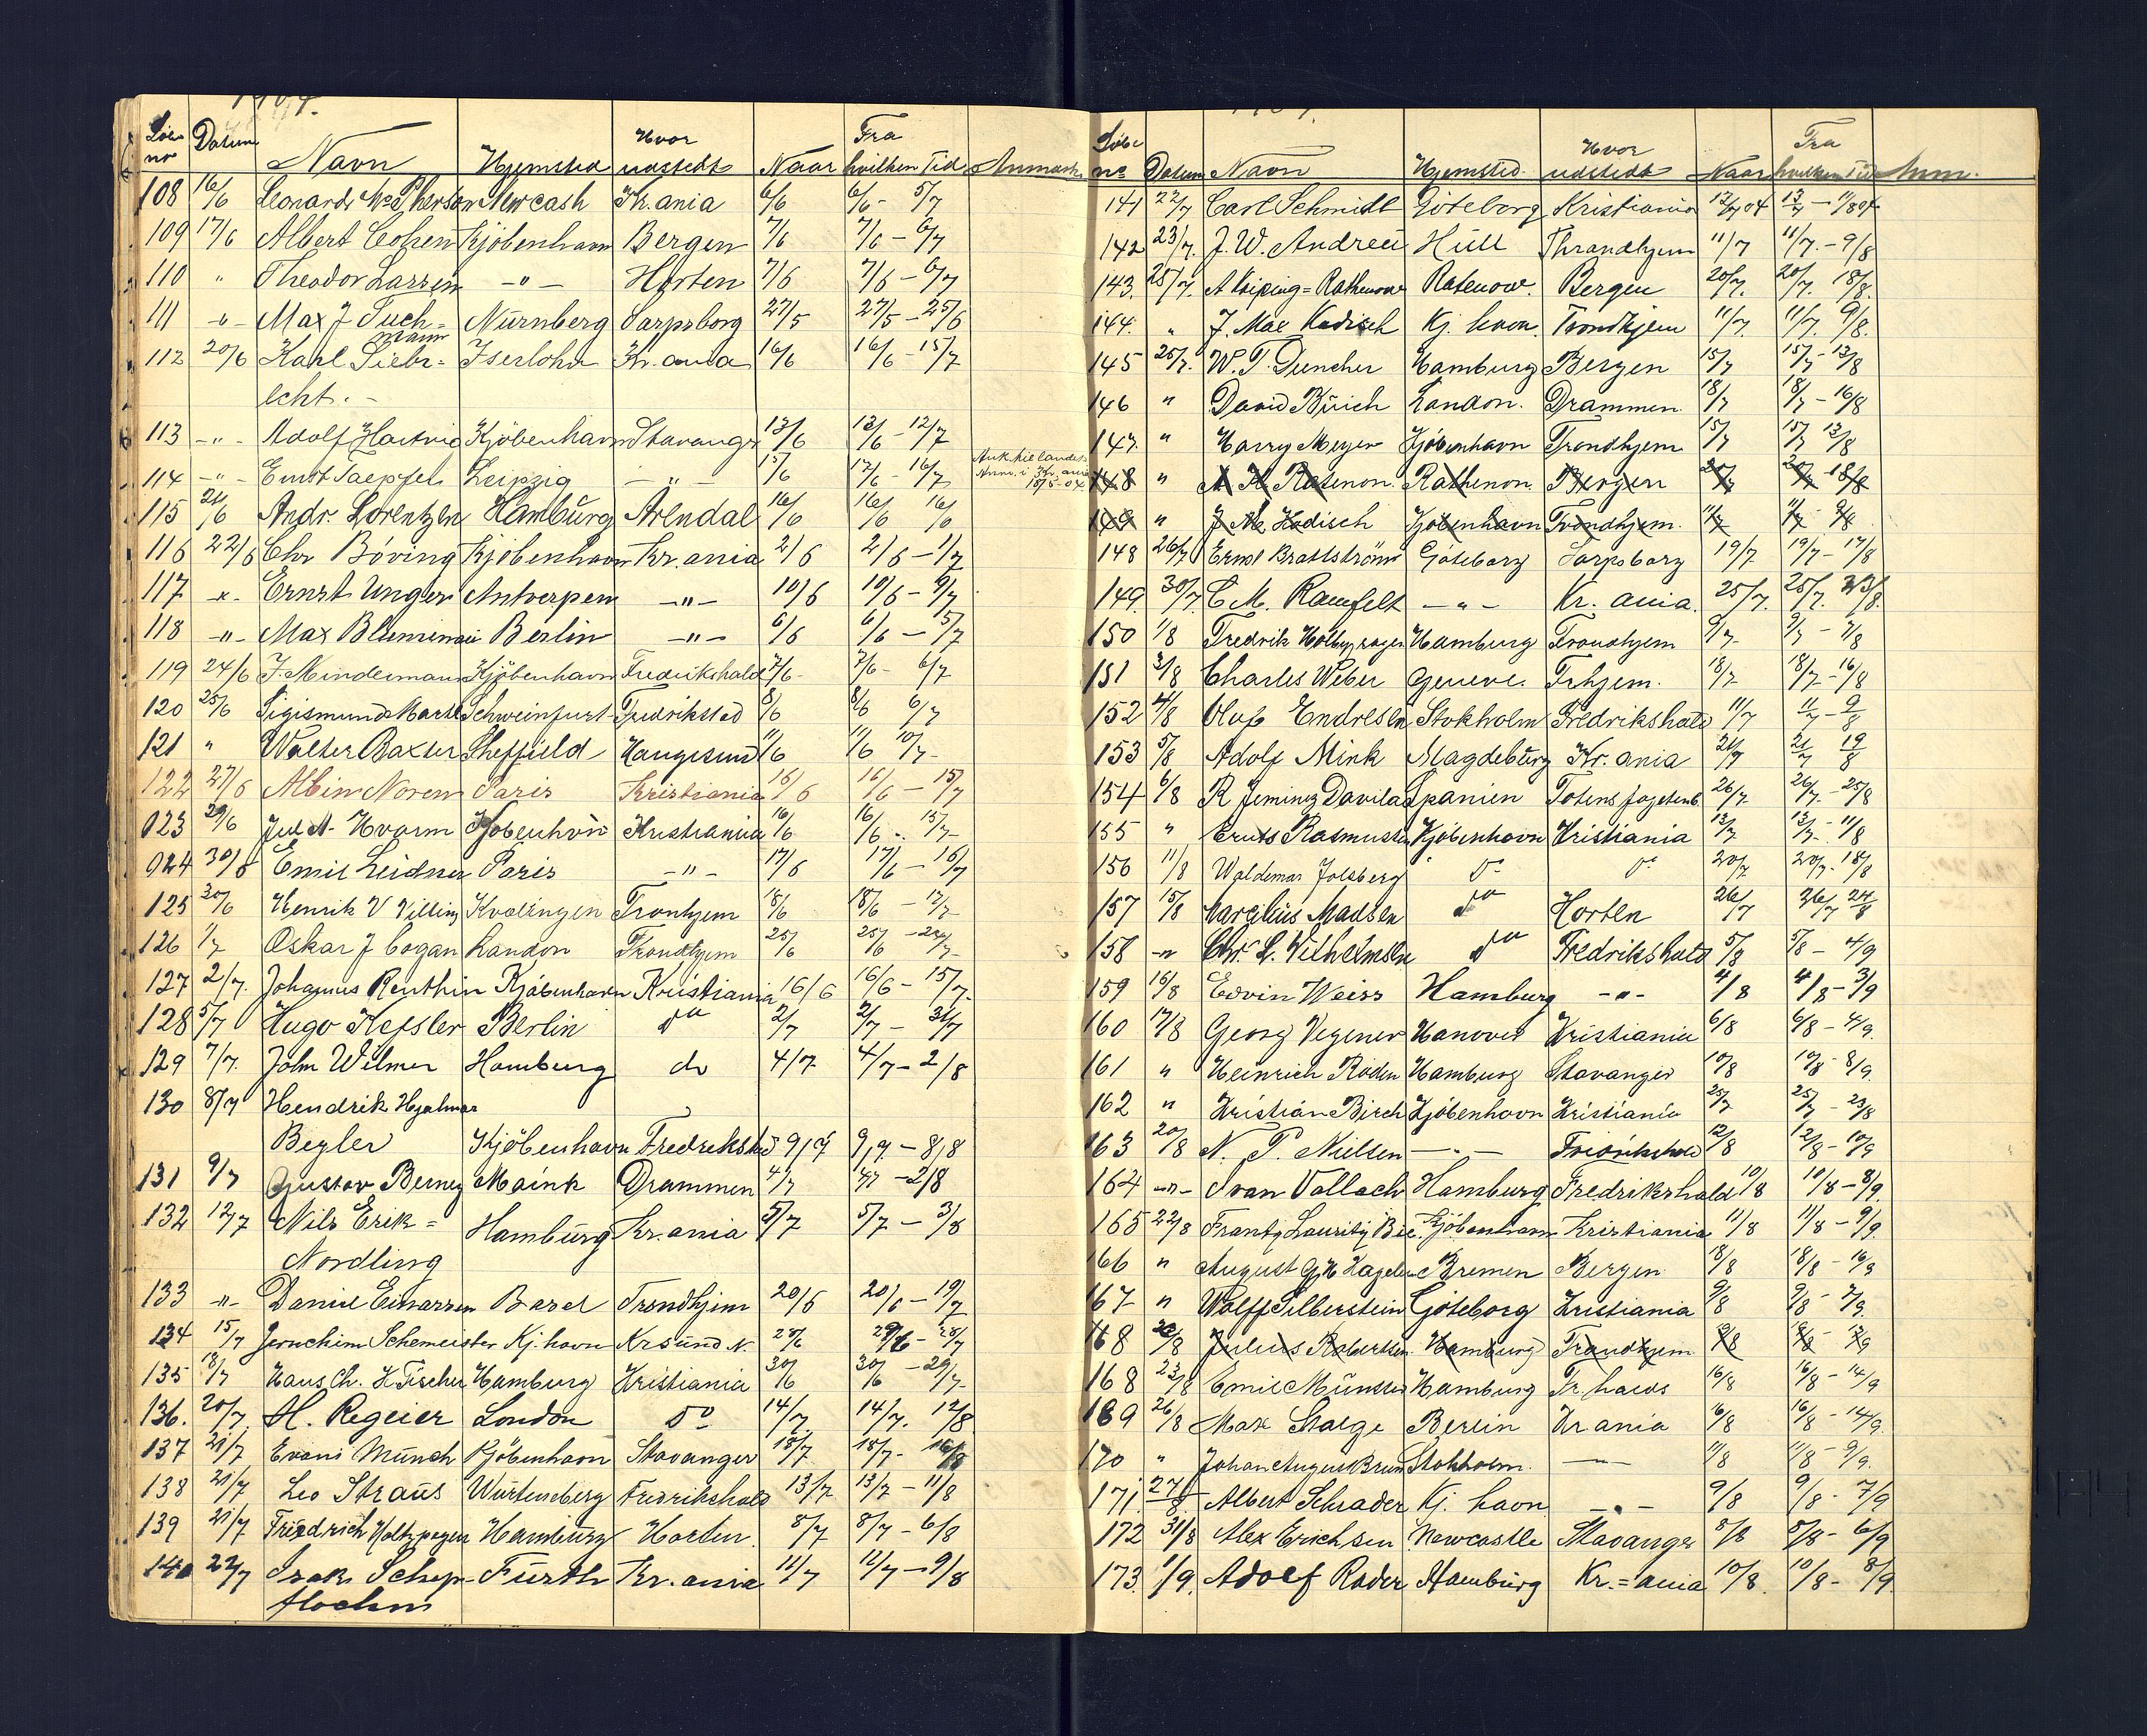 1904.
Løbe no Datum Navn Hjemsted Hvor udstedt Naar Fra hvilken Tid Anmærk.
108 16/6 Leonard McPherson Newcash Kr.ania 6/6 6/6 - 5/7
109 17/6 Albert Cohen Kjöbenhavn Bergen 7/6 7/6 - 6/7
110 " Theodor Larsen - " - Horten 7/6 7/6 - 6/7
111 - " - Max J Tuch= Nürnberg Sarpsborg 27/5 27/5 - 25/6
mann
112 20/6 Karl Siebr= Iserlohn Kr.ania 16/6 16/6 - 15/7
echt. -
113 - " - Adolf Hartvig Kjöbenhavn Stavanger 13/6 13/6 - 12/7
114 - " - Ernst Taepfel Leipzig - " - 17/6 17/6 - 16/7 Ank. til landet
Anm. i Kr. ania
18/5-04
115 21/6 Andr. Lorentzen Hamburg Arendal 16/6 16/6 16/6
116 22/6 Chr Böving Kjöbenhavn Kr.ania 2/6 2/6 - 1/7
117 - " - Ernst Unger Antverpen - " - 10/6 10/6 - 9/7
118 - " - Max Blumenau Berlin - " - 6/6 6/6 - 5/7
119 24/6 J. Mindermann Kjöbenhavn Fredrikshald 7/6 - 7/6 - 6/7
120 25/6 Sigismund Schweinfurt Fredrikstad 8/6 8/6 6/7
121 " Walter Baxter Sheffield Haugesund 11/6 11/6 10/7 -
122 27/6 Albin Noren Paris Kristiania 16/6 16/6 - 15/7
123 29/6 Jul A. Hvarm Kjöbenhvn Kristiania 16/6 16/6 - 15/7
124 30/6 Emil Leidner Paris - " - 17/6 17/6 - 16/7
125 30/6 Henrik V Villing Tronhjem 18/6 18/6 - 17/7
126 1/7 Oskar J Cogan London Trondhjem 25/6 25/6 - 24/7
127 2/7. Johannes Renthin Kjöbenhavn Kristiania 16/6 16/6 - 15/7.
128 5/7 Hugo Kefsler Berlin do 2/7 2/7 - 31/7
129 7/7. John Wilmer Hamburg do 4/7 4/7 - 2/8
130 8/7 Hendrik Hjalmar
Begler Kjöbenhavn Fredrikstad 9/7 9/7 - 8/8
131 9/7 Gustav Berney Maink Drammen 4/7 4/7 - 2/8
132 12/7 Nils Erik= Hamburg Kr.ania 5/7 5/7 - 3/8
Nordling
133 - " - Daniel Einarsen Basel Trondhjim 20/6 20/6 - 19/7
134 15/7 Jeruchim Schemeister Kj.havn Krsund N. 29/6 29/6 - 28/7
135 18/7 Hans Ch. H Fischer Hamburg Kristiania 30/6 30/6 - 29/7
136. 20/7. H. Regeier London do 14/7 14/7. 12/8
137 21/7 Evans Münch Kjöbenhavn Stavanger 18/7 18/7 - 16/8
138 21/7 Leo Straus Würtemberg Fredrikshald 13/7 13/7 - 11/8
139 21/7 Friedrich Holtzpagen Hamburg Horten 8/7 8/7 - 6/8
140 22/7 Isak Schep- Fürth Kr.ania 11/7 11/7 - 9/8
flochen
1904.
Løbe no Datum Navn Hjemsted. Hvor udstedt Naar Fra hvilken Tid Anm.
141 22/7 Carl Schmidt Göteborg Kristiania 13/7 04 13/7 - 11/8 04
142 23/7. J. W. Andreu Hull Throndhjem 11/7 11/7. - 9/8
143. 25/7. A Ratenow. Bergen 20/7. 20/7. 18/8.
144. " J. Max Kadisch Kj. havn. Trondhjem 11/7. 11/7 9/8.
145 25/7. W. T. Duncher Hamburg Bergen 15/7 15/7 - 13/8
146 " David Bürich London. Drammen. 18/7 18/7 - 16/8
147. " Harry Meyer Kjöbenhavn Trondhjem 15/7 15/7 13/8
148 " A. H. Ratenon. Rathenon. Bergen 20/7 20/7 18/8
149 " J M. Kadisch Kjöbenhavn Trondhjem. 11/7 11/7 9/8
148 26/7 Ernst Brattström Göteborg Sarpsborg 19/7 19/7 - 17/8
149. 30/7. C. M. Ramfelt - " - Kr. ania. 25/7. 25/7. 23/8.
150 1/8 Fredrik Holtzpagen Hamburg Trondhjem 9/7 - 9/7 - 7/8
151 3/8 Charles Weber Geneve. Trhjem. 18/7 18/7 - 16/8
152 4/8 Oluf Endresen Stokholm Fredrikshald 11/7 11/7 - 9/8
153 5/8 Adolf Mink Magdeburg Kr.ania 21/7 21/7 19/8
154 6/8 R Jeminez Davila Spanien Totens fogderi. 26/7. 26/7. - 25/8
155 " Rasmussen Kjöbenhavn Kristiania 13/7 13/7. - 11/8
156 11/8 Waldemar Jolsberg do do 20/7 20/7. - 18/8
157 15/8 Marcilius Madsen do Horten 26/7 26/7 24/8
158 - " Chr. L. Vilhelmsen do Fredrikshald 5/8 5/8 - 4/9
159 16/8 Edvin Weiss Hamburg - " - 4/8 4/8 - 3/9
160 17/8 Georg Vegener Hanover Kristiania 6/8 6/8 - 4/9.
161 " Heinrich Röden Hamburg Stavanger 10/8 10/8 - 8/9.
162 " Kristian Birch Kjöbenhavn Kristiania 25/7 25/7 - 23/8
163 20/8 N. P. Nielsen - " - Fredrikshald 12/8 12/8 - 10/9
164 - " - Ivan Vallach Hamburg Fredrikshald 10/8 10/8 - 8/9.
165 22/8 Frantz Lauritz Kjöbenhavn Kristiania 11/8 11/8 - 9/9.
166 " August Bremen Bergen. 18/8 18/8 - 16/9
167 " Wolff Silberstein Göteborg Kristiania 9/8 9/8 - 7/9.
168 Julius Robertsen. Hamburg Trondhjem.
168 23/8 Emil Münster Hamburg Fr. halds 16/8 16/8 - 14/9
169 26/8 Max Salge Berlin Kr ania 16/8 16/8 - 14/9.
170 " Johan August Brun Stokholm. - " - 11/8 11/8 - 9/9.
171. 27/8 Albert Schrader Kj. havn - " - 9/8 9/8 - 7/9
172 31/8 Alex Erichsen Newcastle Stavanger 8/8 8/8 - 6/9
173 1/9. Adolf Rader Hamburg Kr.=ania 10/8. 10/8 - 8/9.